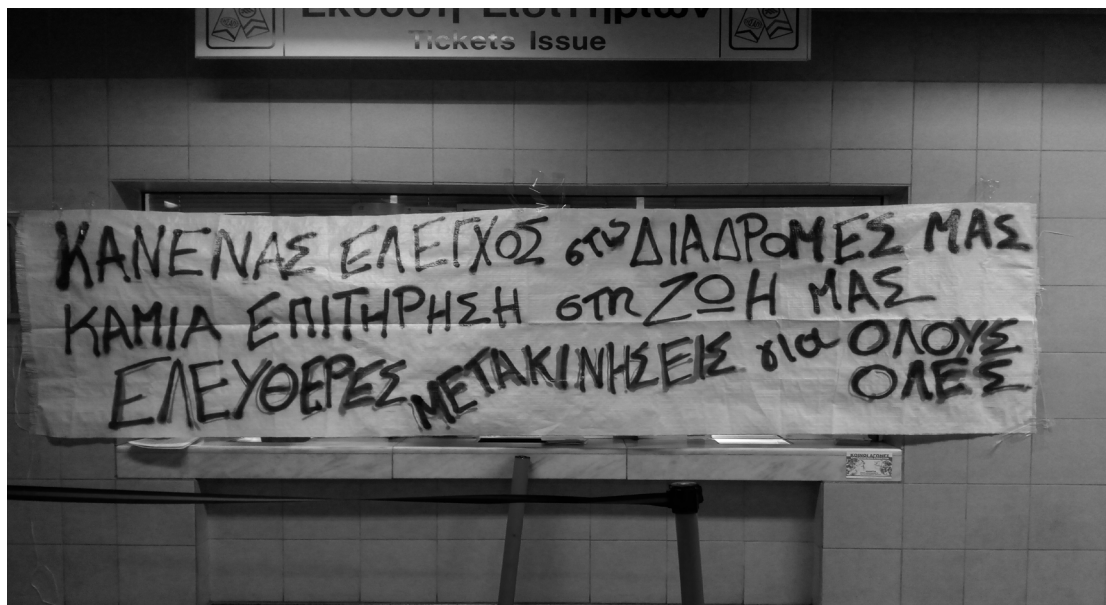 Έκδοση Εισιτηρίων
Tickets Issue
ΚΑΝΕΝΑΣ ΕΛΕΓΧΟΣ στις ΔΙΑΔΡΟΜΕΣ ΜΑΣ
ΚΑΜΙΑ ΕΠΙΤΗΡΗΣΗ στη ΖΩΗ ΜΑΣ
ΕΛΕΥΘΕΡΕΣ ΜΕΤΑΚΙΝΗΣΕΙΣ για ΟΛΟΥΣ
ΟΛΕΣ